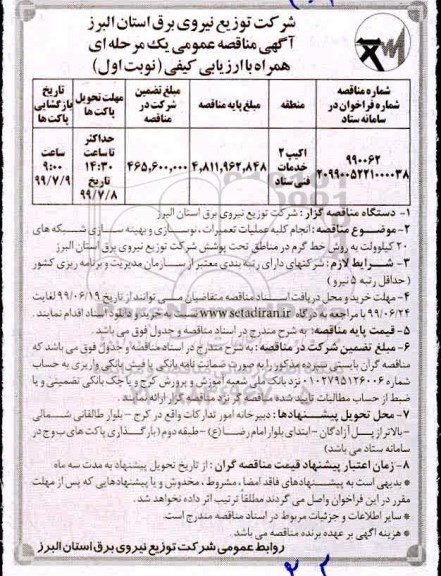 شرکت توزیع نیروی برق استان البرز
آگهی مناقصه عمومی یک مرحله ای
همراه با ارزیابی کیفی (نوبت اول)
شماره مناقصه شماره فراخوان در سامانه ستاد
منطقه
مبلغ پایه مناقصه
مبلغ تضمین شرکت در مناقصه
مهلت تحویل پاکت ها
تاریخ بازگشایی پاکت ها
۹۹۰۰۶۲
۲۰۹۹۰۰۵۲۲۱۰۰۰۰۳۸
اکیپ ۲ خدمات فنی ستاد
۴,۸۱۱,۹۶۲,۸۴۸
۴۶۵,۶۰۰,۰۰۰
حداکثر تا ساعت ۱۴:۳۰ تاریخ ۹۹/۷/۸
ساعت ۹:۰۰ ۹۹/۷/۹
۱- دستگاه مناقصه گزار : شرکت توزیع نیروی برق استان البرز
۲- موضوع مناقصه : انجام کلیه عملیات تعمیرات ، نوسازی و بهینه سازی شبکه های
۲۰ کیلوولت به روش خط گرم در مناطق تحت پوشش شرکت توزیع نیروی برق استان البرز
۳- شرایط لازم : شرکتهای دارای رتبه بندی معتبر از سازمان مدیریت و برنامه ریزی کشور
(حداقل رتبه ۵ نیرو)
۴- مهلت خرید و محل دریافت اسناد مناقصه متقاضیان می توانند از تاریخ ۹۹/۰۶/۱۹ لغایت
۹۹/۰۶/۲۴ با مراجعه به درگاه www.setadiran.ir نسبت به خرید و دانلود اسناد اقدام نمایند .
۵- قیمت پایه مناقصه : به شرح مندرج در اسناد مناقصه و جدول فوق می باشد .
۶- مبلغ تضمین شرکت در مناقصه : به شرح مندرج در اسناد مناقصه و جدول فوق می باشد که
مناقصه گران بایستی سپرده مذکور را به صورت ضمانت نامه بانکی یا فیش بانکی واریزی به حساب
شماره ۰۱۰۲۷۹۵۱۲۶۰۰۶ نزد بانک ملی شعبه آموزش و پرورش کرج و یا چک بانکی تضمینی و یا
ضبط از حساب مطالبات تایید شده مناقصه گر نزد مناقصه گزار ارائه نمایند .
۷- محل تحویل پیشنهادها : دبیرخانه امور تدارکات واقع در کرج - بلوار طالقانی شمالی
- بالاتر از پل آزادگان - ابتدای بلوار امام رضا (ع) - طبقه دوم (بارگذاری پاکت های ب و ج در
سامانه ستاد می باشد)
۸- زمان اعتبار پیشنهاد قیمت مناقصه گران : از تاریخ تحویل پیشنهاد به مدت سه ماه
* بدیهی است به پیشنهادهای فاقد امضا ، مشروط ، مخدوش و یا پیشنهادهایی که پس از مهلت
مقرر در این فراخوان واصل می گردند مطلقا ترتیب اثر داده نخواهد شد .
* سایر اطلاعات و جزئیات مربوط در اسناد مناقصه مندرج است .
* هزینه آگهی بر عهده برنده مناقصه می باشد .
روابط عمومی شرکت توزیع نیروی برق استان البرز